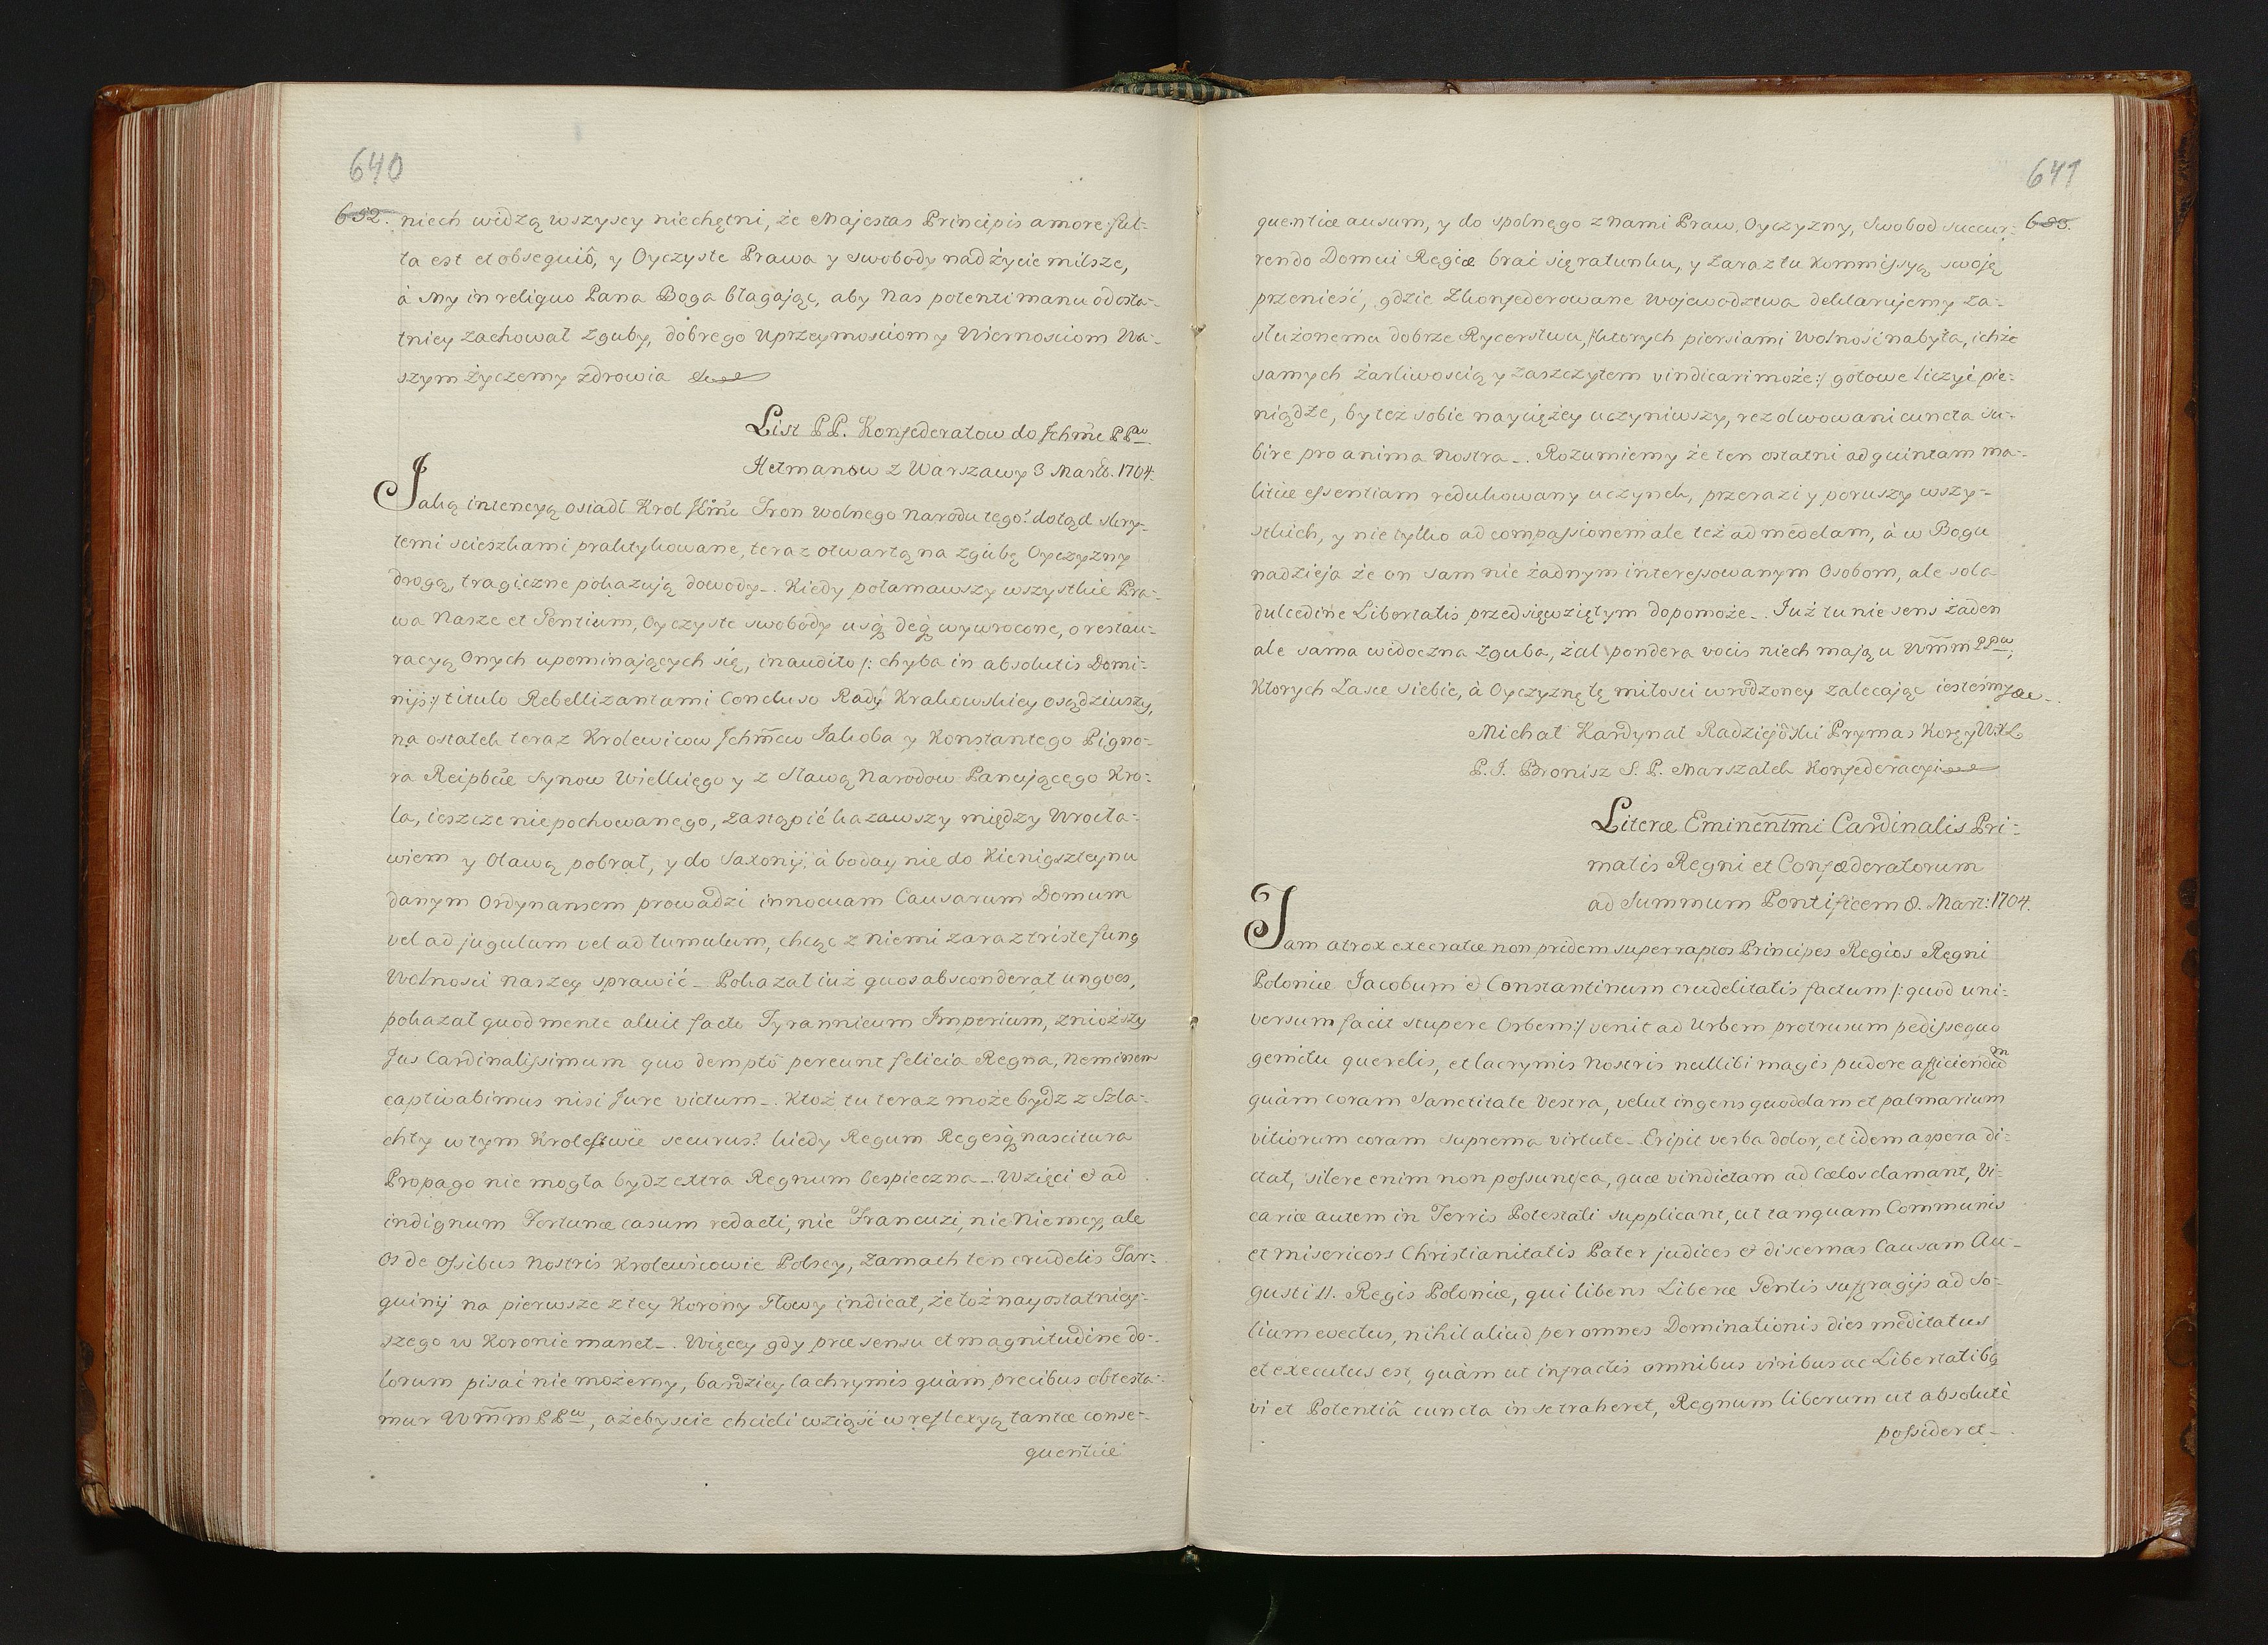 640
652. niech widzą wszyscy niechętni, że Majestas Principis amore ful-
ta est et obsequiô, y Oyczyste Prawa y swobody nad życie milsze,
à My in reliquo Pana Boga błagając, aby Nas potenti manu od osta-
tniey zachował zguby, dobrego Uprzeymosciom y Wiernosciom Wa-
szym życzemy zdrowia
List PP. Konfederatow do Jchmć PPow
Hetmanow z Warszawy 3 Marty. 1704.
Jaką intencyą osiadł Krol Jmć Tron wolnego Narodu tego? dotąd skry-
temi scieszkami praktykowane, teraz otwartą na zgubę Oyczyzny
drogą, tragiczne pokazują dowody. Kiedy połamawszy wszystkie Pra-
wa Nasze et Gentium, Oyczyste swobody usq deq wywrocone, o restau-
racyą Onych upominających się, inaudito /: chyba in absolutis Domi-
nijs:/ titulo Rebellizantami Concluso Rady Krakowskiey osądziwszy,
na ostatek teraz Krolewicow Jchmćiow Jakoba y Konstantego Pigno-
ra Reipbcae Synow Wielkiego y z Sławą Narodow Panującego Kro-
la, ieszcze niepochowanego, zastąpić kazawszy między Wrocła-
wiem y Oławą pobrał, y do Saxonij, à boday nie do Kienigszteynu
danym Ordynansem prowadzi innocuam Causarum Domum
vel ad jugulum vel ad tumulum, chcąc z niemi zaraz triste funq
Wolnosci naszey sprawić. Pokazał iuż quos absconderat ungves,
pokazał quod mente aluit facto Tyrannicum Imperium, zniozszy
Jus Cardinalissimum quo demptô pereunt felicia Regna, Neminem
captivabimus nisi Jure victum. Ktoż tu teraz może bydz z Szla-
chty w tym Krolestwie securus? kiedy Regum Regesq nascitura
Propago nie mogła bydz extra Regnum bespieczna. Wzięci & ad
indignum Fortunae casum redacti, nie Francuzi, nie Niemcy, ale
Os de ossibus Nostris Krolewicowie Polscy, zamach ten crudelis Tar-
quinij na pierwsze z tey Korony Głowy indicat, że toż nayostatniey-
szego w Koronie manet. Więcey gdy prae sensu et magnitudine do-
lorum pisać nie możemy, bardziey lachrymis quàm precibus obtesta-
mur WmmPPow, ażebyscie chcieli wziąść w reflexyą tantae conse-
quentiae
641
653.
quentiae ausum, y do spolnego z nami Praw, Oyczyzny, Swobod succur-
rendo Domui Regiae brać się ratunku, y zaraz tu Kommissyą swoją
przenieść, gdzie Zkonfederowane Wojewodztwa deklarujemy za-
służonemu dobrze Rycerstwu, /:ktorych piersiami Wolność nabyta, ichże
samych żarliwoscią y zaszczytem vindicari może:/ gotowe liczyć pie-
niądze, by też sobie nayciężey uczyniwszy, rezolwowani cuncta su-
bire pro anima Nostra. Rozumiemy że ten ostatni ad quintam ma-
litiae essentiam redukowany uczynek, przerazi y poruszy wszy-
stkich, y nie tylko ad compassionem ale też ad medelam, à w Bogu
nadzieja że on sam nie żadnym interessowanym Osobom, ale sola
dulcedine Libertatis przedsięwziętym dopomoże. Już tu nie sens żaden
ale sama widoczna zguba, żal pondera vocis niech mają u WmmPPow,
Ktorych Łasce siebie, à Oyczyznę tę miłosci wrodzoney zalecając iestesmy &c.
Michał Kardynał Radziejôski Prymas Korę y WXL
P. J. Bronisz S. P. Marszałek Konfederacyi
Literae Eminentmi Cardinalis Pri-
matis Regni et Confaederatorum
ad Summum Pontificem 8. Mart: 1704.
Jam atrox execratae non pridem super raptos Principes Regios Regni
Poloniae Jacobum & Constantinum crudelitatis factum /: quod uni-
versum facit stupere Orbem:/ venit ad Urbem protrusum pedissequo
gemitu querelis, et lacrymis Nostris nullibi magis pudore afficiendum
quàm coram Sanctitate Vestra, velut ingens quoddam et palmarium
vitiorum coram suprema virtute. Eripit verba dolor, et idem aspera di-
ctat, silere enim non possunt ea, quae vindictam ad Caelos clamant, Vi-
cariae autem in Terris Potestati supplicant, ut tanquam Communis
et misericors Christianitatis Pater judices & discernas Causam Au-
gusti II. Regis Poloniae, qui libens Liberae Gentis suffragijs ad So-
lium evectus, nihil aliud per omnes Dominationis dies meditatus
et executus est, quàm ut infractis omnibus viribus ac Libertatibq
vi et Potentiâ cuncta in se traheret, Regnum liberum ut absolutè
possideret.